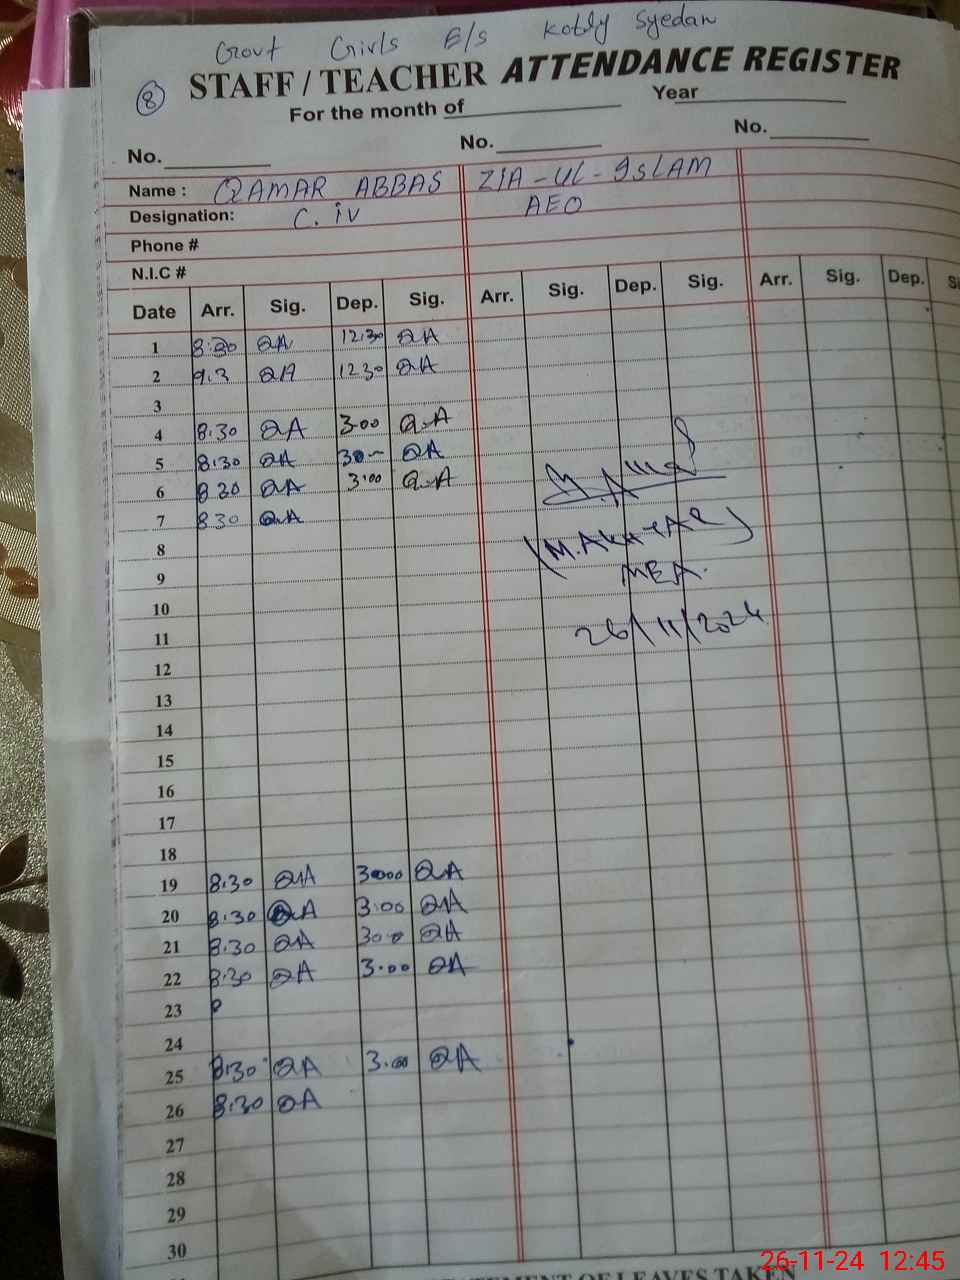 Govt Girls E/S Kotly Syedan
8 STAFF / TEACHER ATTENDANCE REGISTER
For the month of Year
No. No. No.
Name : QAMAR ABBAS ZIA-UL-ISLAM
Designation: C. iv AEO
Phone #
N.I.C #
Date Arr. Sig. Dep. Sig. Arr. Sig. Dep. Sig. Arr. Sig. Dep.
1 8:30 QA 12:30 QA
2 9.3 QA 1230 QA
3
4 8.30 QA 3.00 Q.A
5 8.30 QA 30- QA
6 8 30 QA 3.00 Q.A
7 830 Q.A
8 (M. AKHTAR)
9 MEA.
10
11 26/11/2024
12
13
14
15
16
17
18
19 8.30 QA 3000 QA
20 8.30 QA 3.00 QA
21 8.30 QA 300 QA
22 8.30 QA 3.00 QA
23
24
25 8.30 QA 3.00 QA
26 8.30 QA
27
28
29
30
OF LEAVES TAKEN
26-11-24 12:45